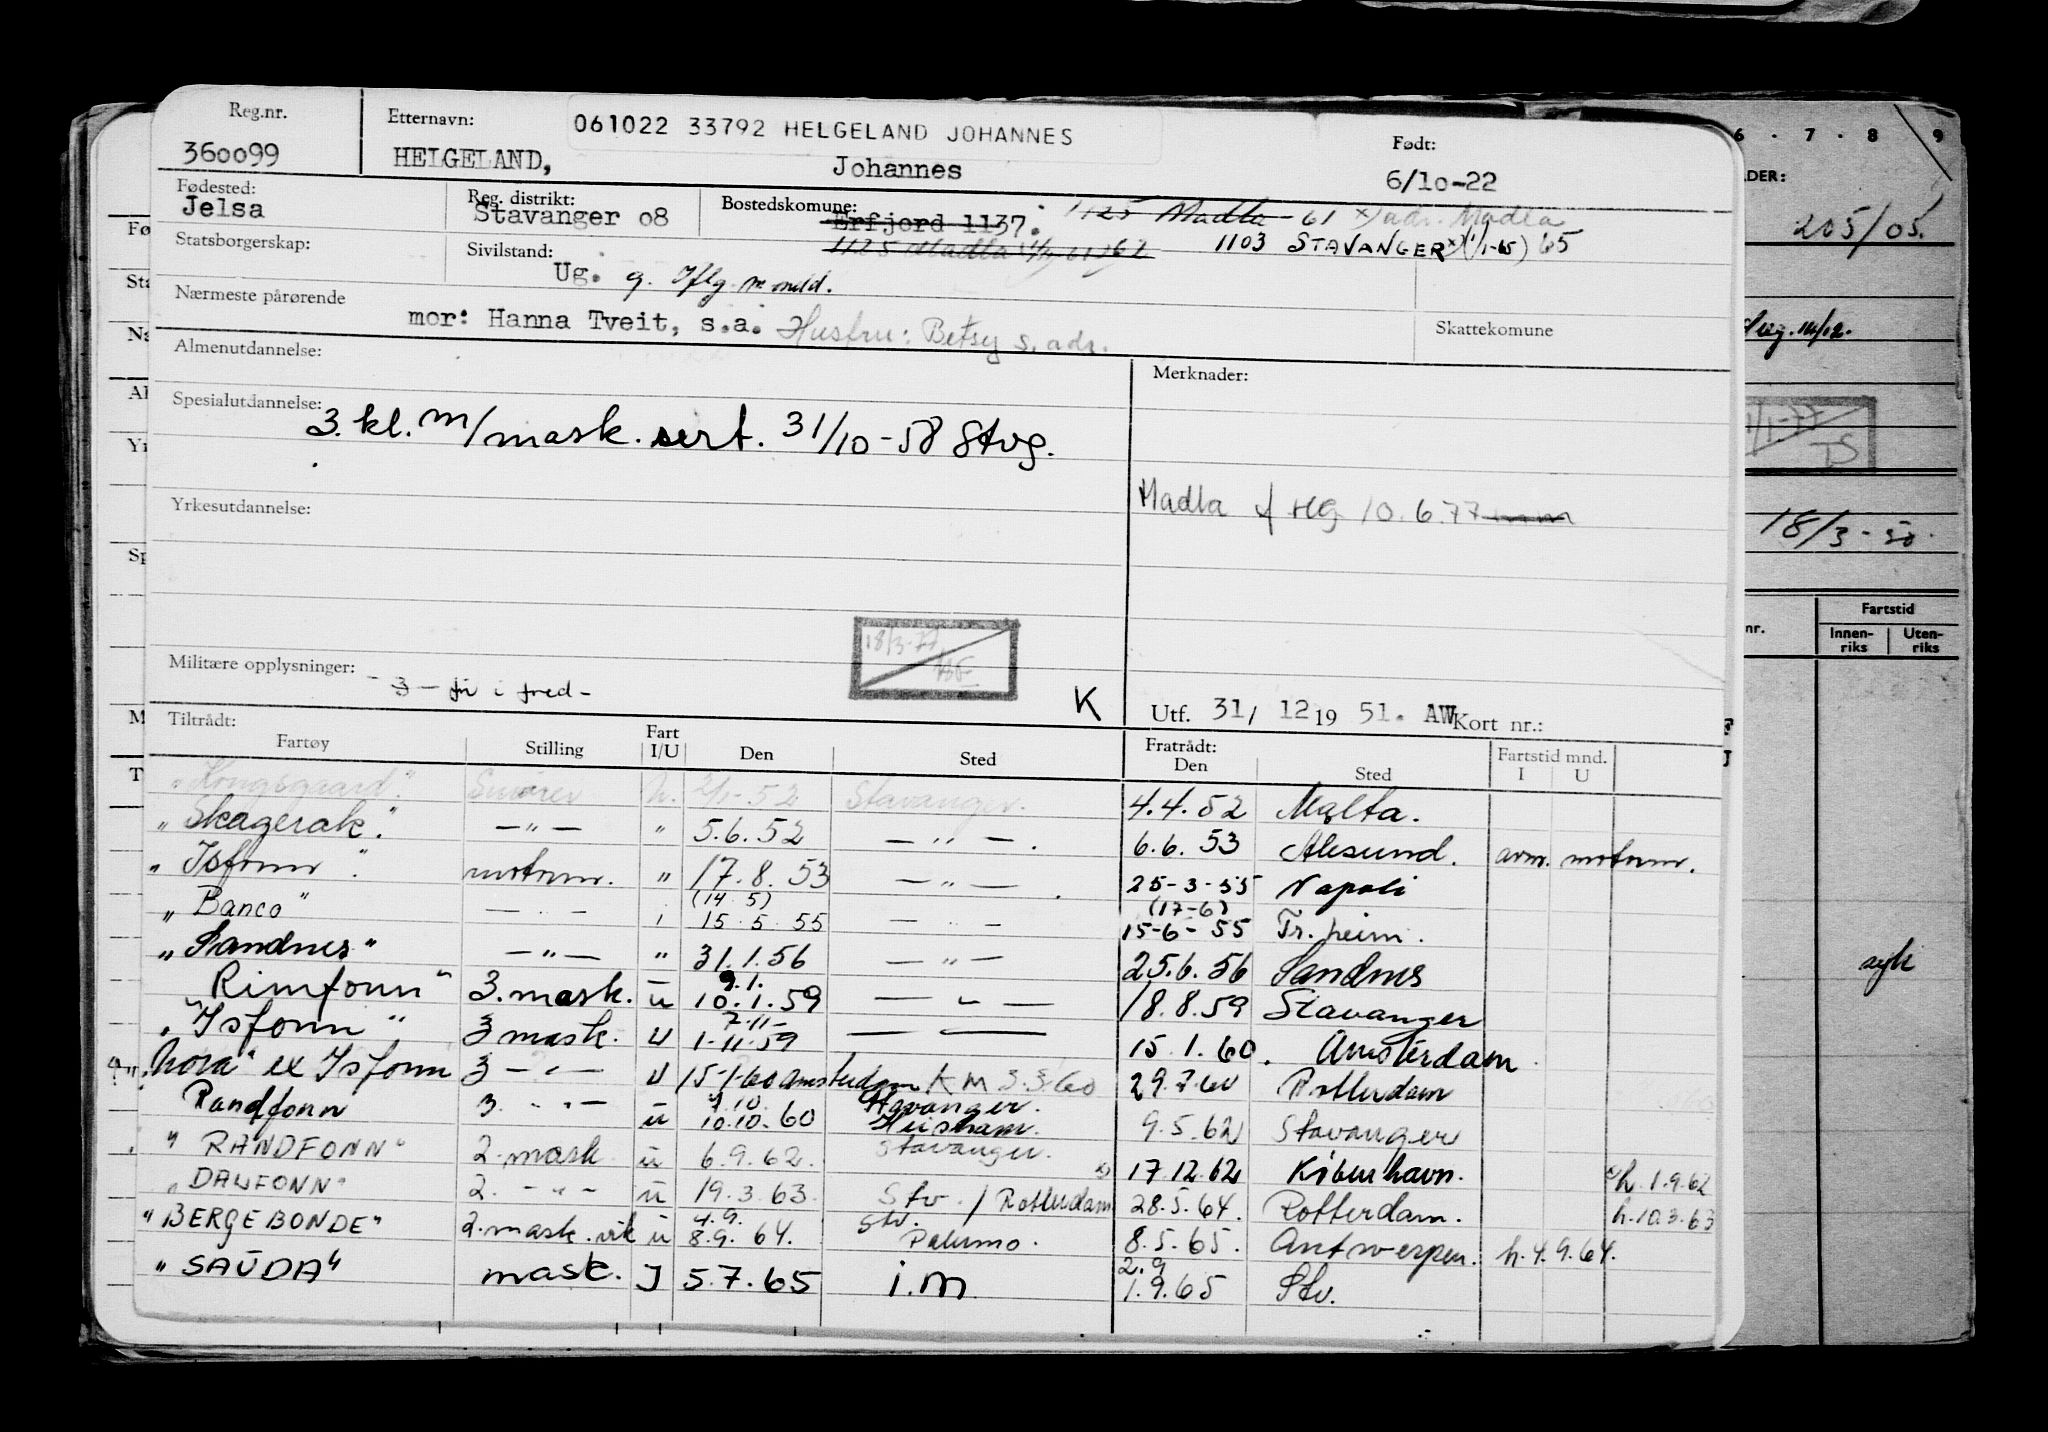 Reg.nr. Etternavn: 061022 33792 HELGELAND JOHANNES Født:
360099 HELGELAND, Johannes 6/10-22
Fødested: Reg. distrikt: Bostedskomune: 1125 Madla - 61 x) adr. Madla
Jelsa Stavanger 08 Erfjord 1137. 1103 STAVANGER x) (1/1-65) 65
Statsborgerskap: Sivilstand: 1125 Madla
Ug. g. Iflg. m meld.
Nærmeste pårørende mor: Hanna Tveit, s.a. Hustru: Betsy s. adr. Skattekomune
Almenutdannelse: Merknader:
Spesialutdannelse: 3. kl. m/mask. sert. 31/10-58 Stvg.
Yrkesutdannelse: Madla HG 10.6.77
18/3-77
Militære opplysninger: - 3 - fri i fred - K
Utf. 31/ 12 19 51. AW Kort nr.:
Tiltrådt: Fratrådt:
Fartøy Stilling Fart I/U Den Sted Den Sted Fartstid mnd. I U
"Kongsgaard" Smører U. 2/1-52 Stavanger. 4.4.52 Malta.
"Skagerak." — " — " 5.6.52 — " — . 6.6.53 Ålesund. avm. motorm.
"Isfonn" motorm. " 17.8.53 — " — 25-3-55 Napoli
"Banco" — " — " (14.5) 15.5.55 — " — (17-6) 15-6-55 Tr.heim.
"Sandnes" — " — " 31.1.56 — " — 25.6.56 Sandnes
Rimfonn" 3. mask. u 9.1. 10.1.59 — " — 18.8.59 Stavanger
"Isfonn" 3 mask. U 7-11- 1-11-59 — — 15.1.60. Amsterdam
"Nora" ex Isfonn 3 — " — U 15-1-60 Amsterdam KM 3.3.60 29.7.60 Rotterdam
Randfonn 3. — " — u 10.10.60 Stavanger. Heisham. 9.5.62 Stavanger
"RANDFONN" 2. mask u 6.9.62. Stavanger. x) 17.12.62 København. x) h. 1.9.62
"DALFONN" 2. — " — u 19.3.63. Stv. / Rotterdam 28.5.64. Rotterdam. h. 10.3.63
"BERGEBONDE" 2. mask. vik u 4.9. 8.9.64. Stv. Palermo. 8.5.65. Antwerpen. h. 4.9.64.
"SAUDA" mask. I 5.7.65 i.m 2.9 1.9.65 Stv.
6 · 7 · 8 9
205/05.
1/1-77
TS
18/3-50
nr. Fartstid
Innen-riks Uten-riks